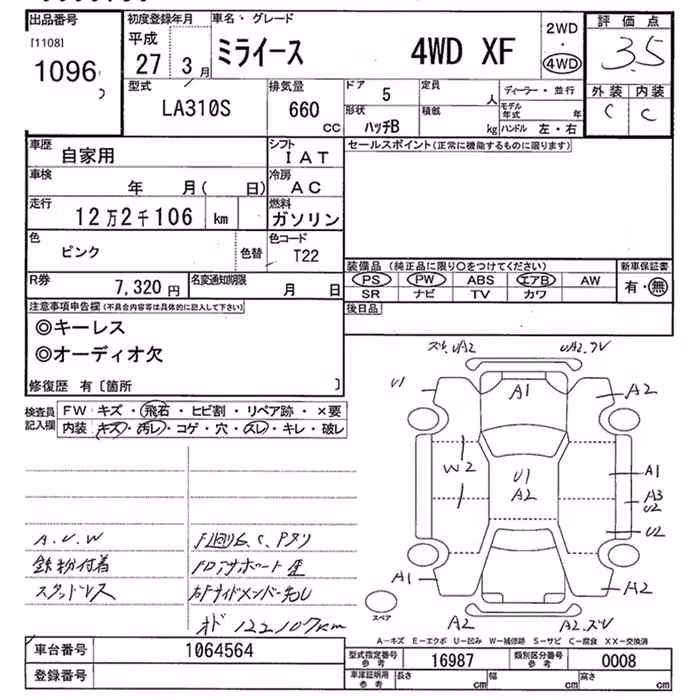 出品番号
[1108]
1096
初度登録年月
平成
27 3月
車名・グレード
ミライース 4WD XF
2WD
・
4WD
評価点
3.5
外装 内装
C C
型式
LA310S
排気量
660
cc
ドア
5
形状
ハッチB
定員
人
積載
kg
ディーラー・並行
モデル年式 年
ハンドル 左・右
車歴
自家用
シフト
IAT
車検
年 月( 日)
冷房
AC
走行
12万2千106 km
燃料
ガソリン
色
ピンク
色替
色コード
T22
R券
7,320円
名変通知期限
月 日
セールスポイント(正常に機能するものに限ります)
装備品(純正品に限り○をつけてください)
PS PW ABS エアB AW
SR ナビ TV カワ
新車保証書
有・無
後日品
注意事項申告欄(不具合内容等は具体的に記入して下さい)
◎キーレス
◎オーディオ欠
修復歴 有〔箇所 〕
検査員記入欄
FW キズ・飛石・ヒビ割・リペア跡・×要
内装 キズ・汚レ・コゲ・穴・スレ・キレ・破レ
A.U.W
鉄粉付着
スタッドレス
オド 122107km
UA2
U1
A1
A2
W2
U1
A2
A1
A3
U2
U2
A1
A2
A2
スペア
A-キズ E-エクボ U-凹み W-補修跡 S-サビ C-腐食 XX-交換済
車台番号
1064564
登録番号
型式指定番号 参考
16987
類別区分番号 参考
0008
車庫証明用 参考
長さ cm
幅 cm
高さ cm